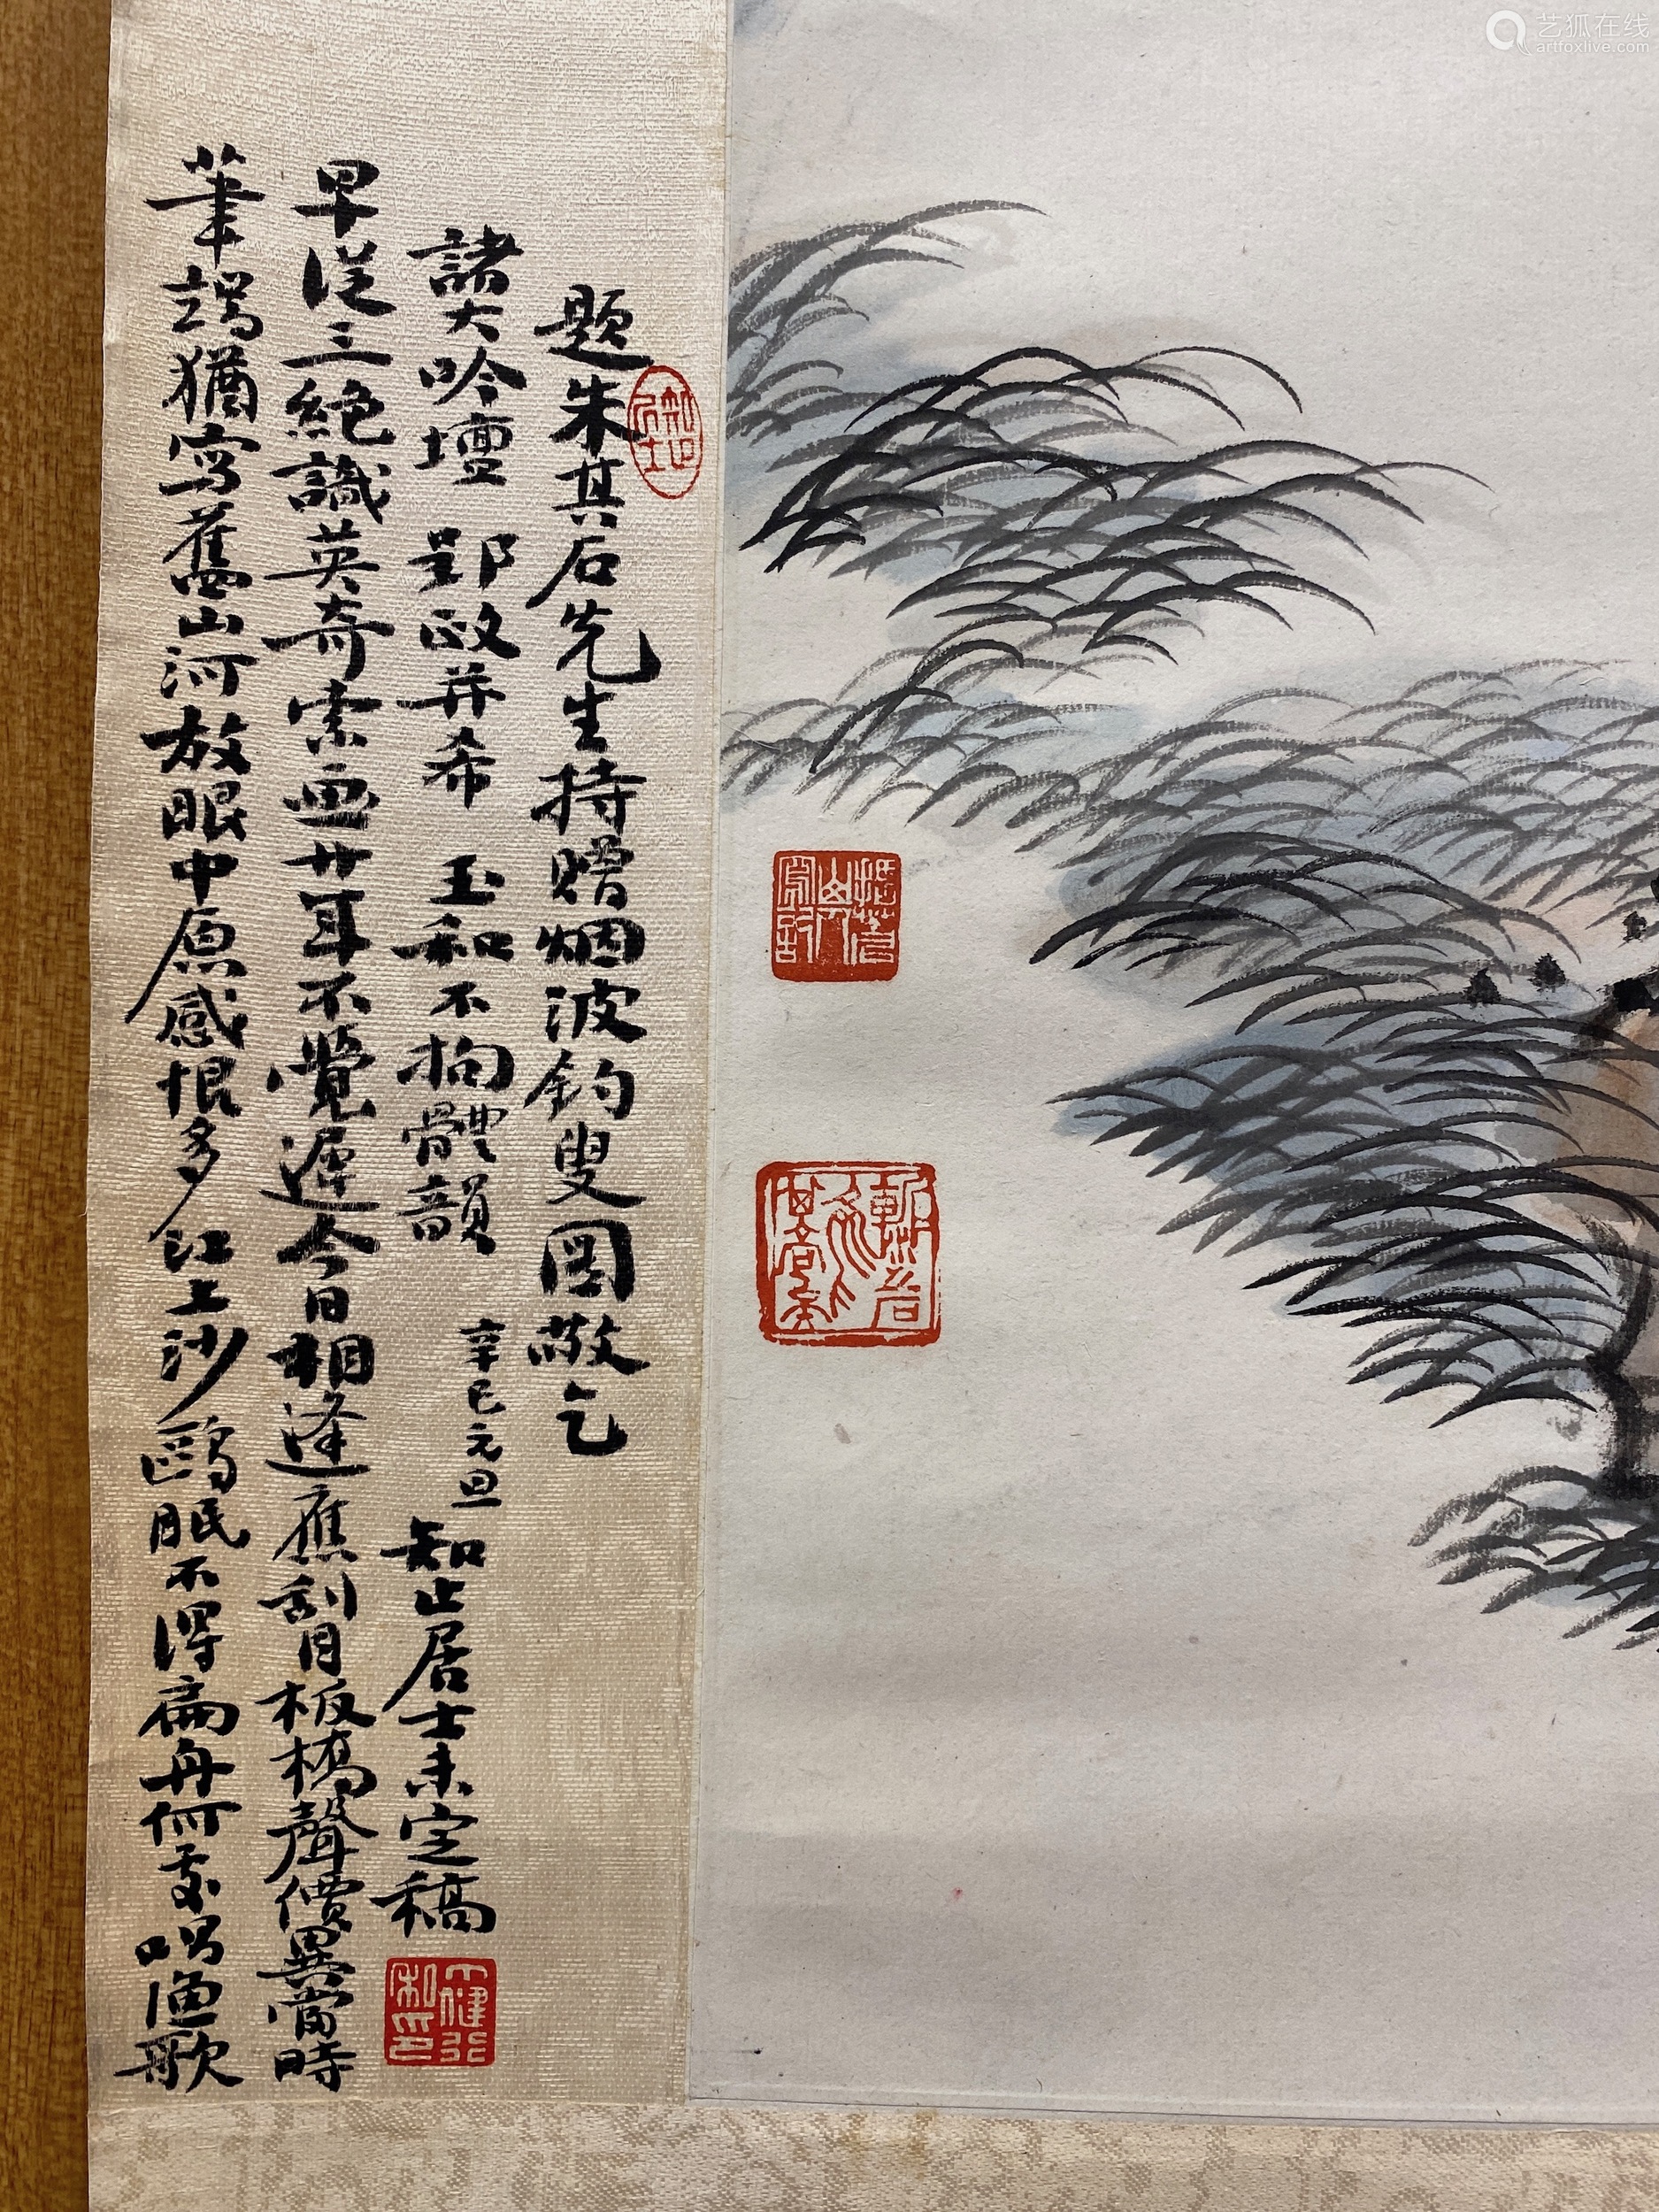 艺狐在线
artfoxlive.com
題朱其石先生持贈烟波釣叟圖敬乞
諸大吟壇 郢政并希 玉和不拘體韻 辛巳元旦 知止居士未定稿
早從三絕識英奇索畫廿年不覺遲今日相逢應刮目板橋聲價異當時
筆端猶寫舊山河放眼中原感恨多江上沙鷗眠不得扁舟何處唱漁歌